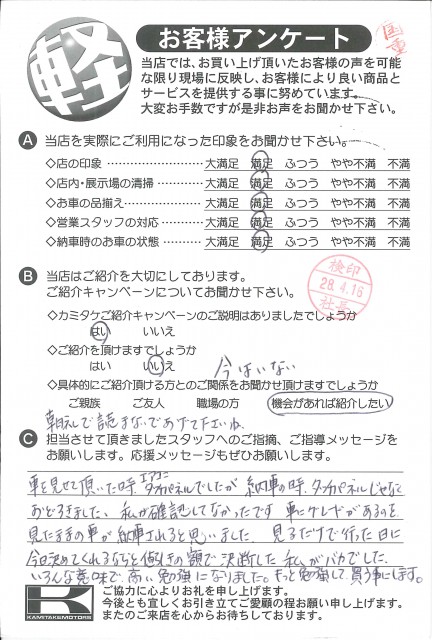 軽
お客様アンケート
国重
当店では、お買い上げ頂いたお客様の声を可能
な限り現場に反映し、お客様により良い商品と
サービスを提供する事に努めています。
大変お手数ですが是非お声をお聞かせ下さい。
A 当店を実際にご利用になった印象をお聞かせ下さい。
◇店の印象 大満足 満足 ふつう やや不満 不満
◇店内・展示場の清掃 大満足 満足 ふつう やや不満 不満
◇お車の品揃え 大満足 満足 ふつう やや不満 不満
◇営業スタッフの対応 大満足 満足 ふつう やや不満 不満
◇納車時のお車の状態 大満足 満足 ふつう やや不満 不満
B 当店はご紹介を大切にしてあります。
ご紹介キャンペーンについてお聞かせ下さい。
検印
28.4.16
社長
◇カミタケご紹介キャンペーンのご説明はありましたでしょうか
はい いいえ
◇ご紹介を頂けますでしょうか
はい いいえ 今はいない
◇具体的にご紹介頂ける方とのご関係をお聞かせ頂けますでしょうか
ご親族 ご友人 職場の方 機会があれば紹介したい
朝礼で読まないであげて下さいね
C 担当させて頂きましたスタッフへのご指摘、ご指導メッセージをお
願いします。応援メッセージもぜひお願いします。
車を見せて頂いた時、エアコンタッチパネルでしたが納車の時、タッチパネルじゃなく
おどろきました。私が確認してなかったです 車にケレギがあるのを
見たままの車が納車されると思いました。見るだけで行った日に
今日決めてくれるならと値引きの額で決断した私がバカでした。
いろんな意味で高い勉強になりました。もっと勉強して買う事にします。
K
KAMITAKEMOTORS
ご協力に心よりお礼を申し上げます。
今後とも宜しくお引き立てご愛顧の程お願い申し上げます。
またのご来店を心からお待ちしております。